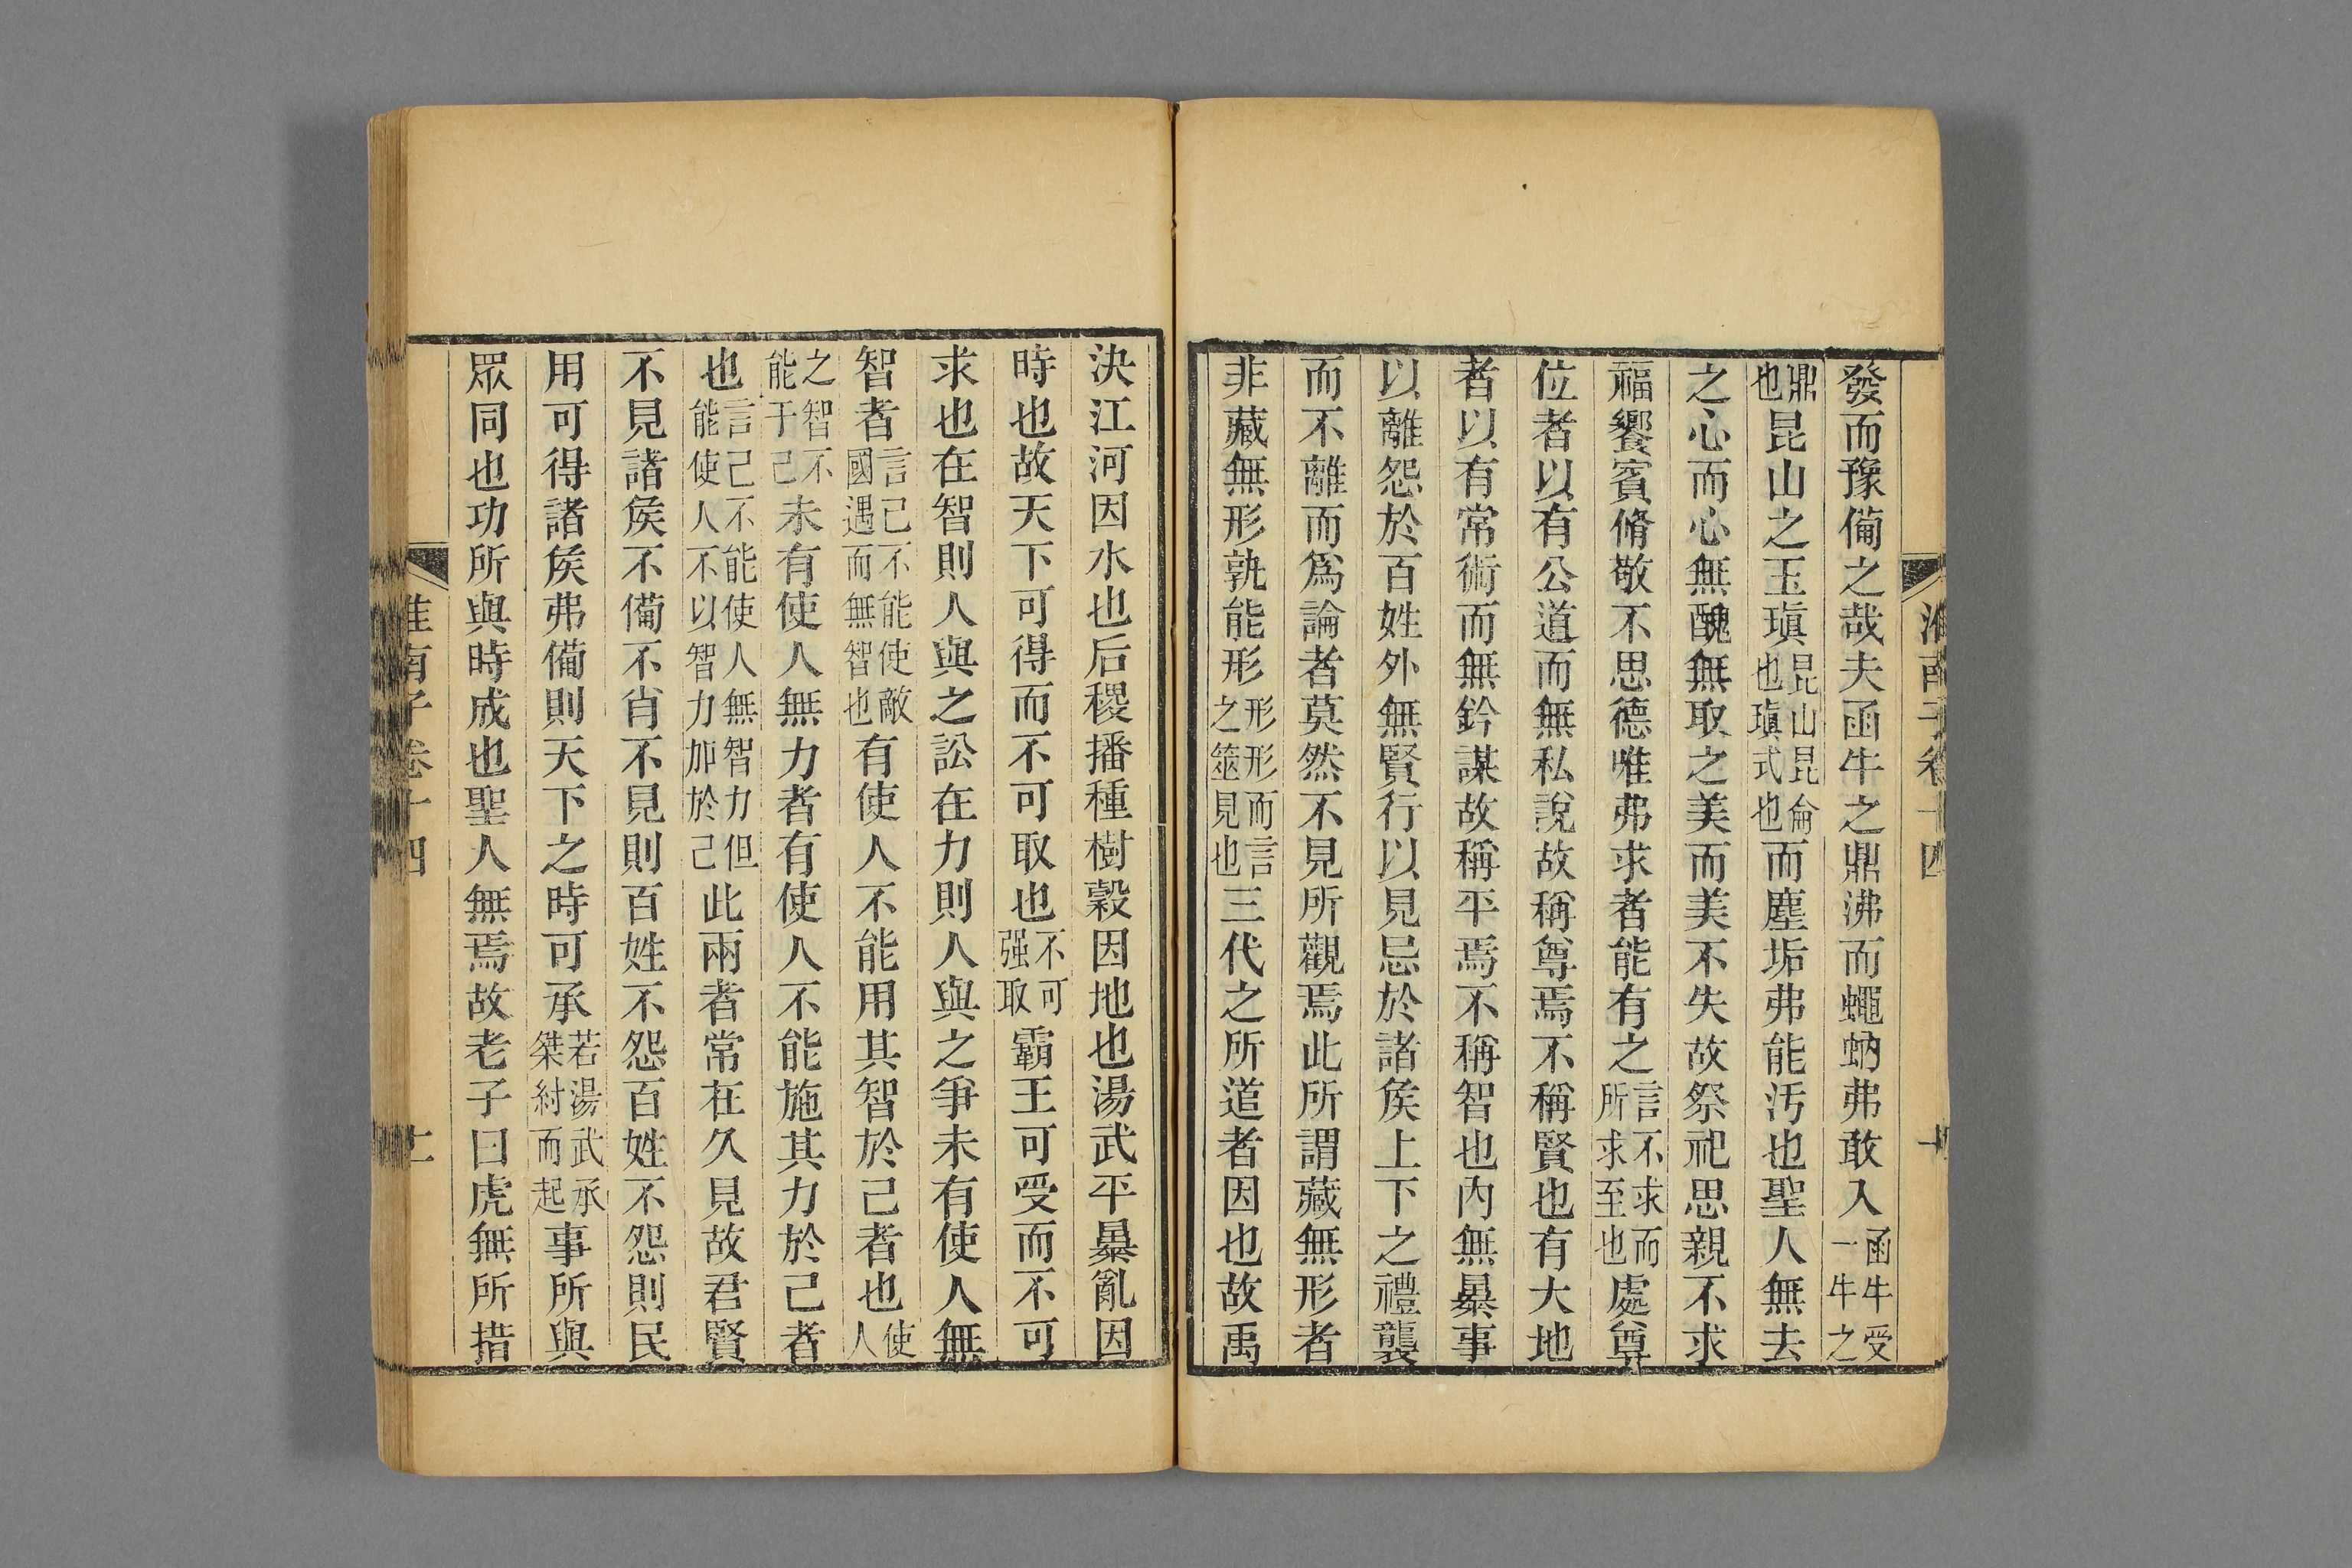 淮南子卷十四 十
發而豫備之哉夫函牛之鼎沸而蠅蚋弗敢入函牛受一牛之
鼎也昆山之玉瑱昆山昆侖也瑱式也而塵垢弗能汚也聖人無去
之心而心無醜無取之美而美不失故祭祀思親不求
福饗賓脩敬不思德唯弗求者能有之言不求而所求至也處尊
位者以有公道而無私說故稱尊焉不稱賢也有大地
者以有常術而無鈐謀故稱平焉不稱智也內無暴事
以離怨於百姓外無賢行以見忌於諸矦上下之禮襲
而不離而爲論者莫然不見所觀焉此所謂藏無形者
非藏無形孰能形形形而言之筮見也三代之所道者因也故禹
決江河因水也后稷播種樹穀因地也湯武平暴亂因
時也故天下可得而不可取也不可强取霸王可受而不可
求也在智則人與之訟在力則人與之爭未有使人無
智者言己不能使敵國遇而無智也有使人不能用其智於己者也使人
之智不能于己未有使人無力者有使人不能施其力於己者
也言己不能使人無智力但能使人不以智力加於己此兩者常在久見故君賢
不見諸矦不備不肖不見則百姓不怨百姓不怨則民
用可得諸矦弗備則天下之時可承若湯武承桀紂而起事所與
眾同也功所與時成也聖人無焉故老子曰虎無所措
淮南子卷十四 十一